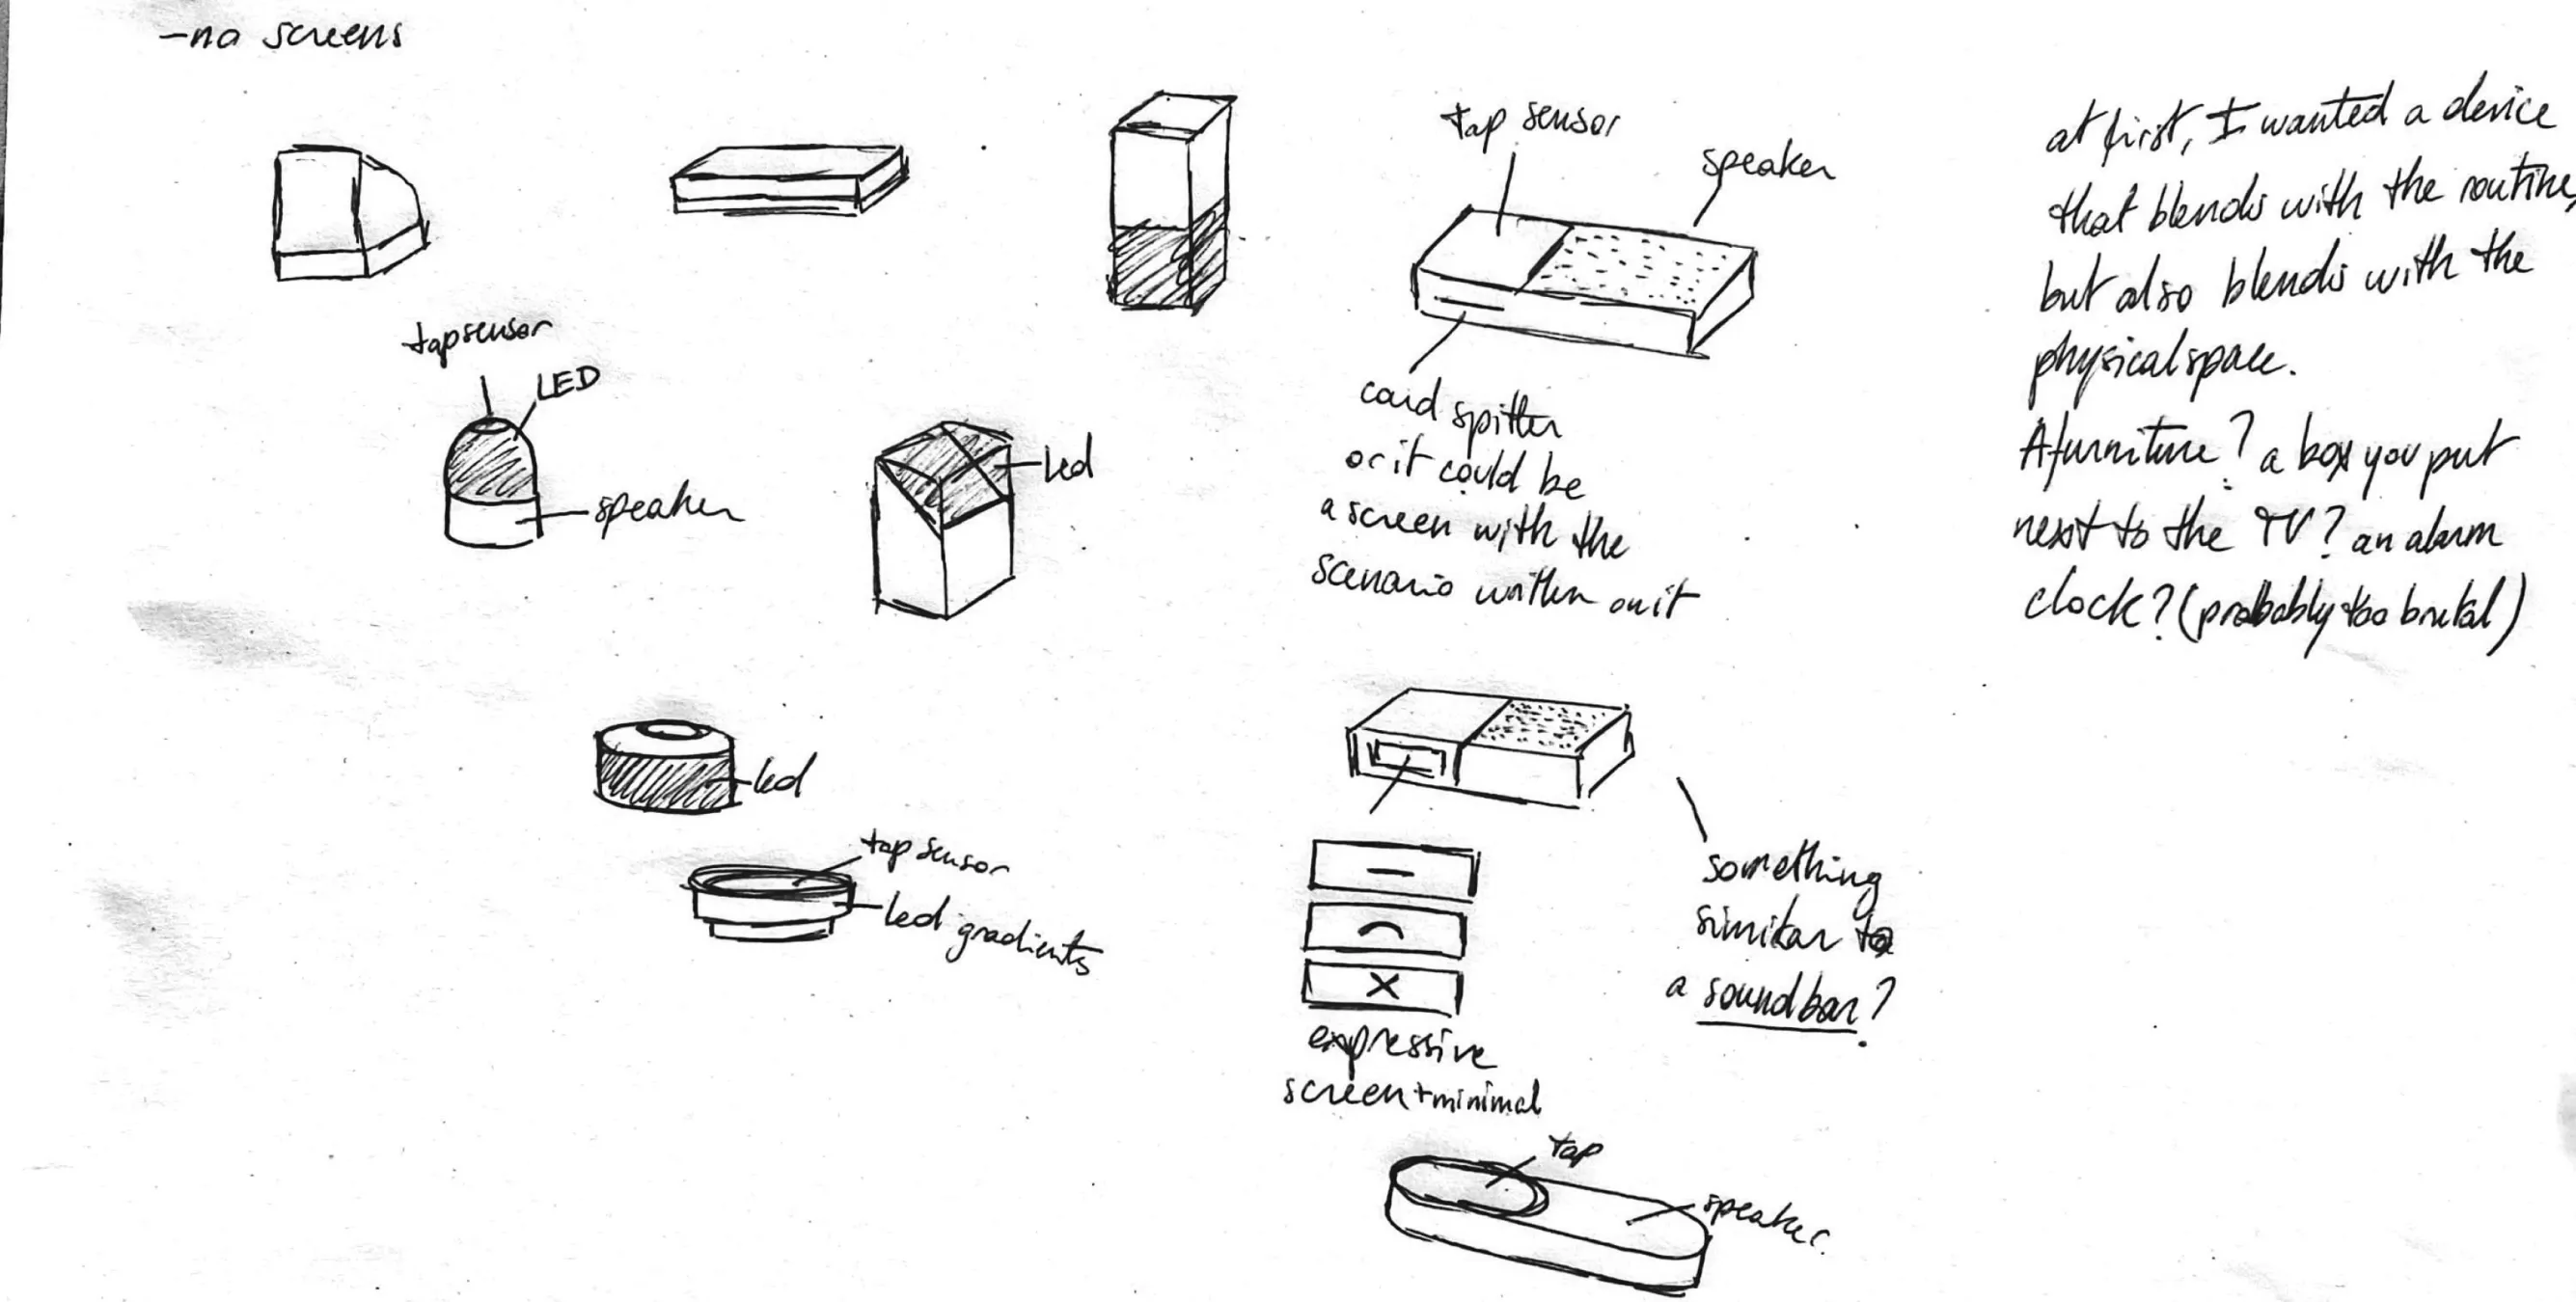 -no screens
tap sensor
LED
speaker
led
led
tap sensor
led gradients
tap sensor
speaker
card spitter
or it could be
a screen with the
scenario written on it
something
similar to
a soundbar?
expressive
screen + minimal
tap
speaker
at first, I wanted a device
that blends with the routine,
but also blends with the
physical space.
A furniture? a box you put
next to the TV? an alarm
clock? (probably too brutal)